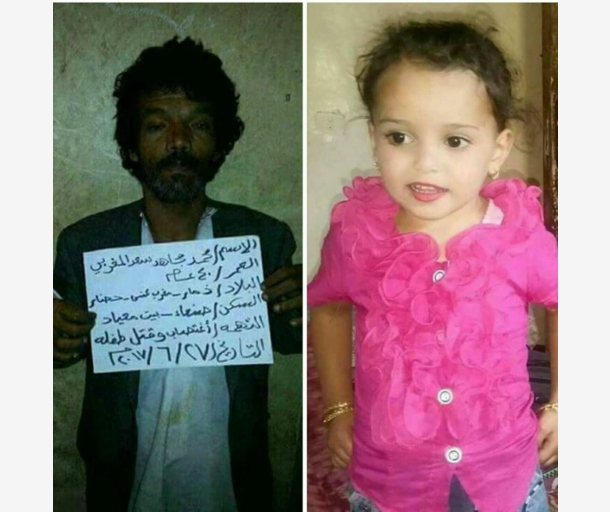 الاسم/محمد مجاهد سعد المغربي
العمر/ ٤٠ عام
البلاد/ ذمار - مغرب عنس -
السكن/ صنعاء - بيت معياد
التهمه/ أغتصاب وقتل طفله
التاريخ/ ٢٧/ ٦/ ٢٠١٧م